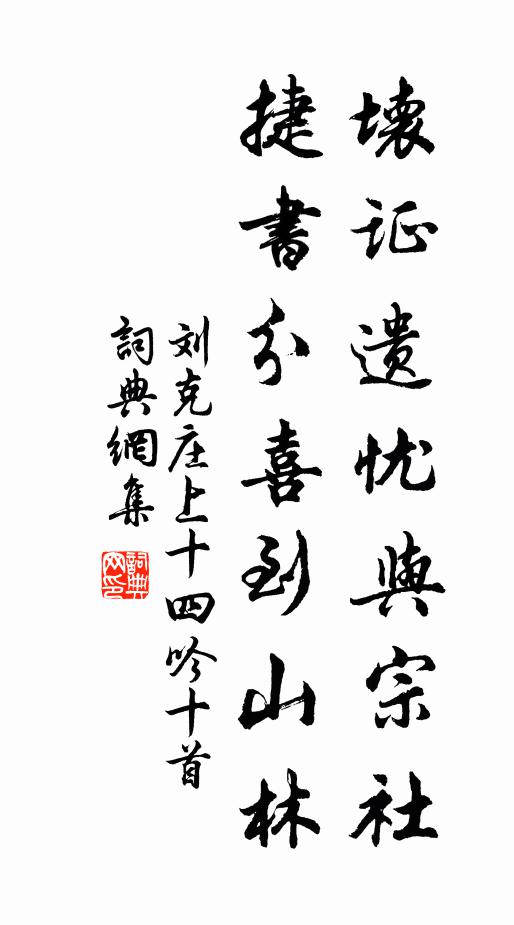 壞证遗忧與宗社
捷書分喜到山林
刘克庄上十四吟十首
詞典網集
詞典
网印